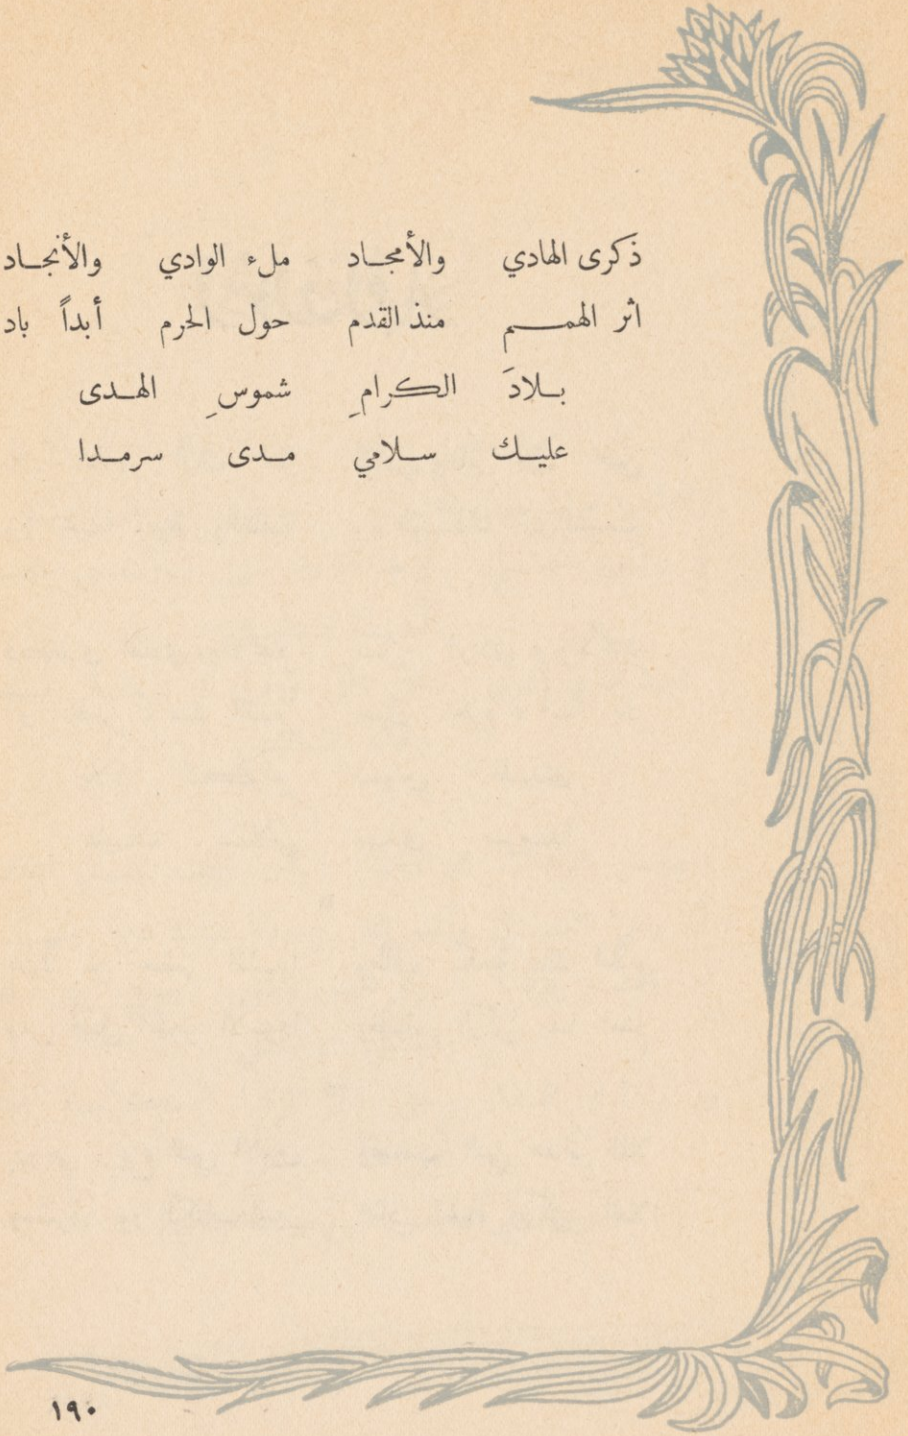 ذكرى الهادي والأمجاد ملء الوادي والأنجاد
اثر الهمم منذ القدم حول الحرم أبداً باد
بلادَ الكرامِ شموسِ الهدى
عليك سلامي مدى سرمدا
١٩٠